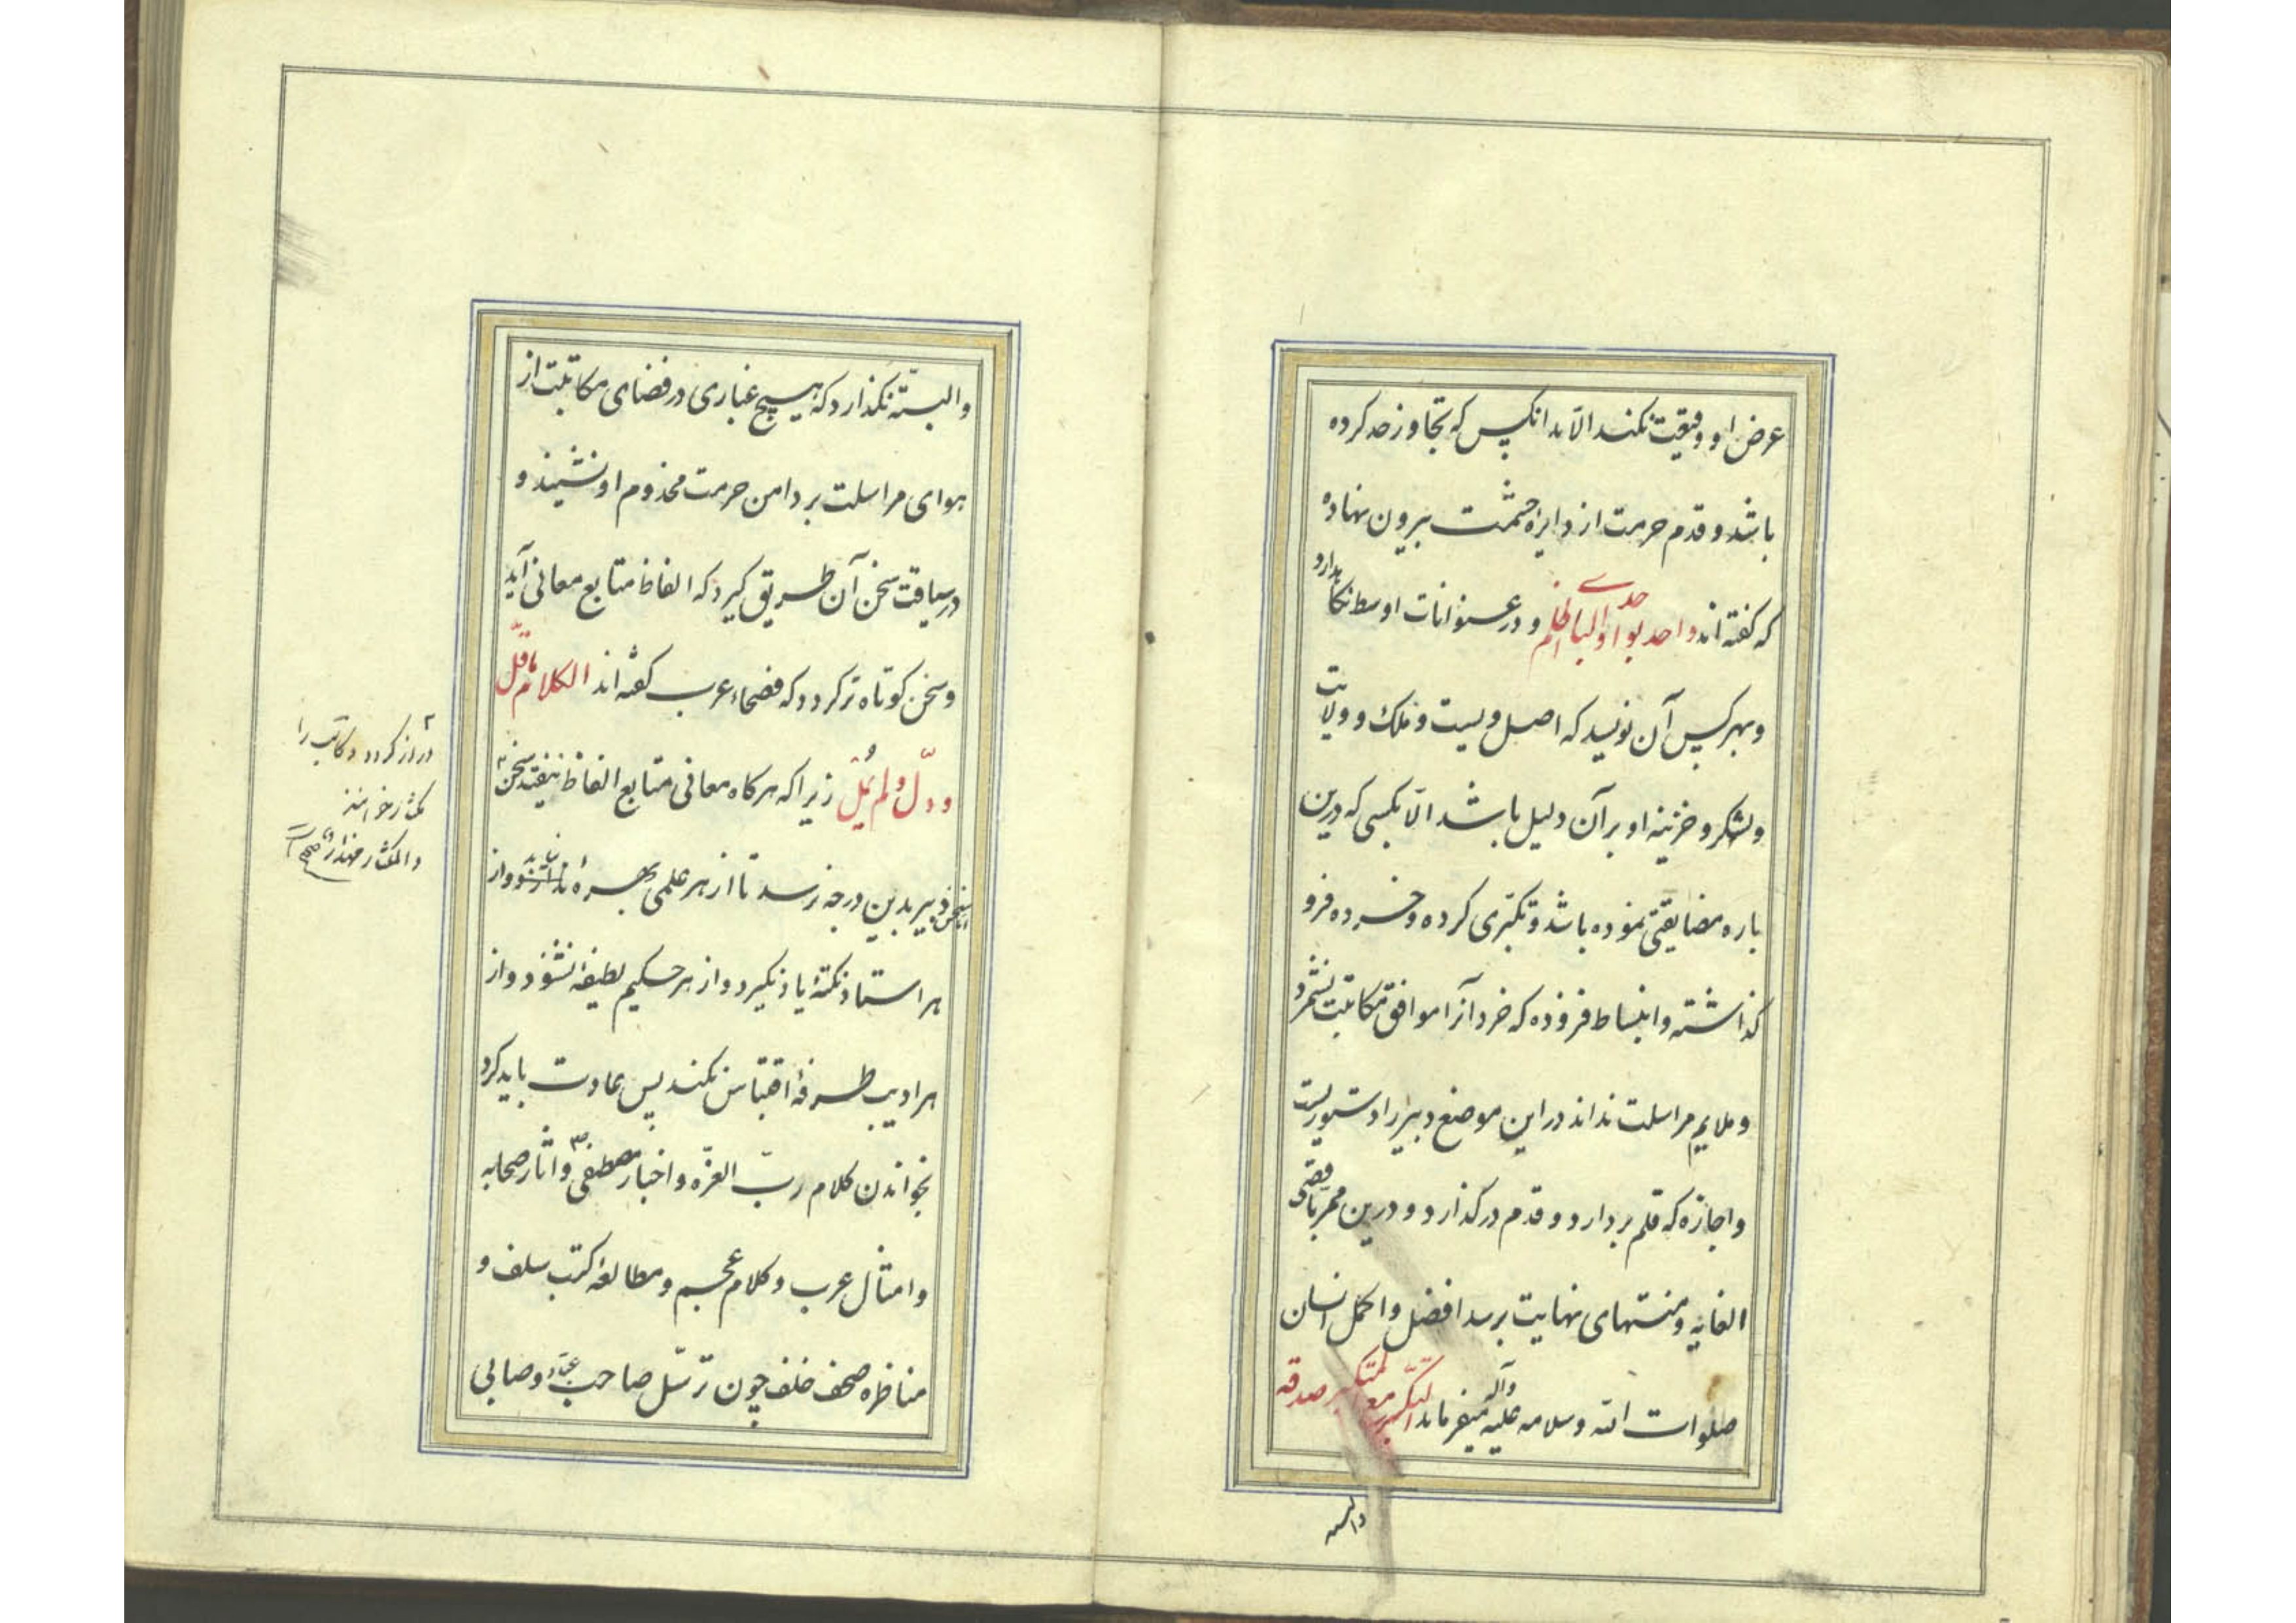 عرض او وقیعت نکند الّا بدانکس که تجاوز حد کرده
باشد و قدم حرمت از دایرهٔ حشمت بیرون نهاده
که گفته‌اند واحدة بواحدة والبادی اظلم و در عنوانات اوسط نگاهدارد
و بهر کس آن نویسد که اصل و نسبت و ملک و ولایت
و لشکر و خزینه او بر آن دلیل باشد الّا بکسی که درین
باره مضایقتی نموده باشد و تکبّری کرده و خرده فرو
گذاشته و انبساط فزوده که خرد آنرا موافق مکاتبت نشمرد
و ملایم مراسلت نداند در این موضع دبیر را دستوریست
و اجازه که قلم بردارد و قدم درگذارد و درین ممرّ باقصی
الغایه و منتهای نهایت برسد افضل و اکمل انسان
صلوات الله و سلامه علیه وآله میفرماید التکبّر مع المتکبّر صدقه
والبته
والبتّه نگذارد که هیچ غباری در فضای مکاتبت از
هوای مراسلت بر دامن حرمت مخدوم او نشیند و
در سیاقت سخن آن طریق گیرد که الفاظ متابع معانی آید
و سخن کوتاه‌تر گردد که فصحاء عرب گفته‌اند الکلام ماقلّ
ودلّ ولم یُمَل زیرا که هر گاه معانی متابع الفاظ بیفتد سخن
دراز گردد و کاتب را
مکثار خوانند
والمکثار مهذار صح
اما سخن دبیر بدین درجه نرسد تا از هر علمی بهره ندارد و از
هر استاد نکتهٔ یاد نگیرد و از هر حکیم لطیفهٔ نشنود و از
هر ادیب طرفهٔ اقتباس نکند پس عادت باید کرد
بخواندن کلام ربّ العزّه و اخبار مصطفی ص و آثار صحابه
و امثال عرب و کلام عجم و مطالعهٔ کتب سلف و
مناظره صحف خلف چون ترسّل صاحب عبّاد و صابی